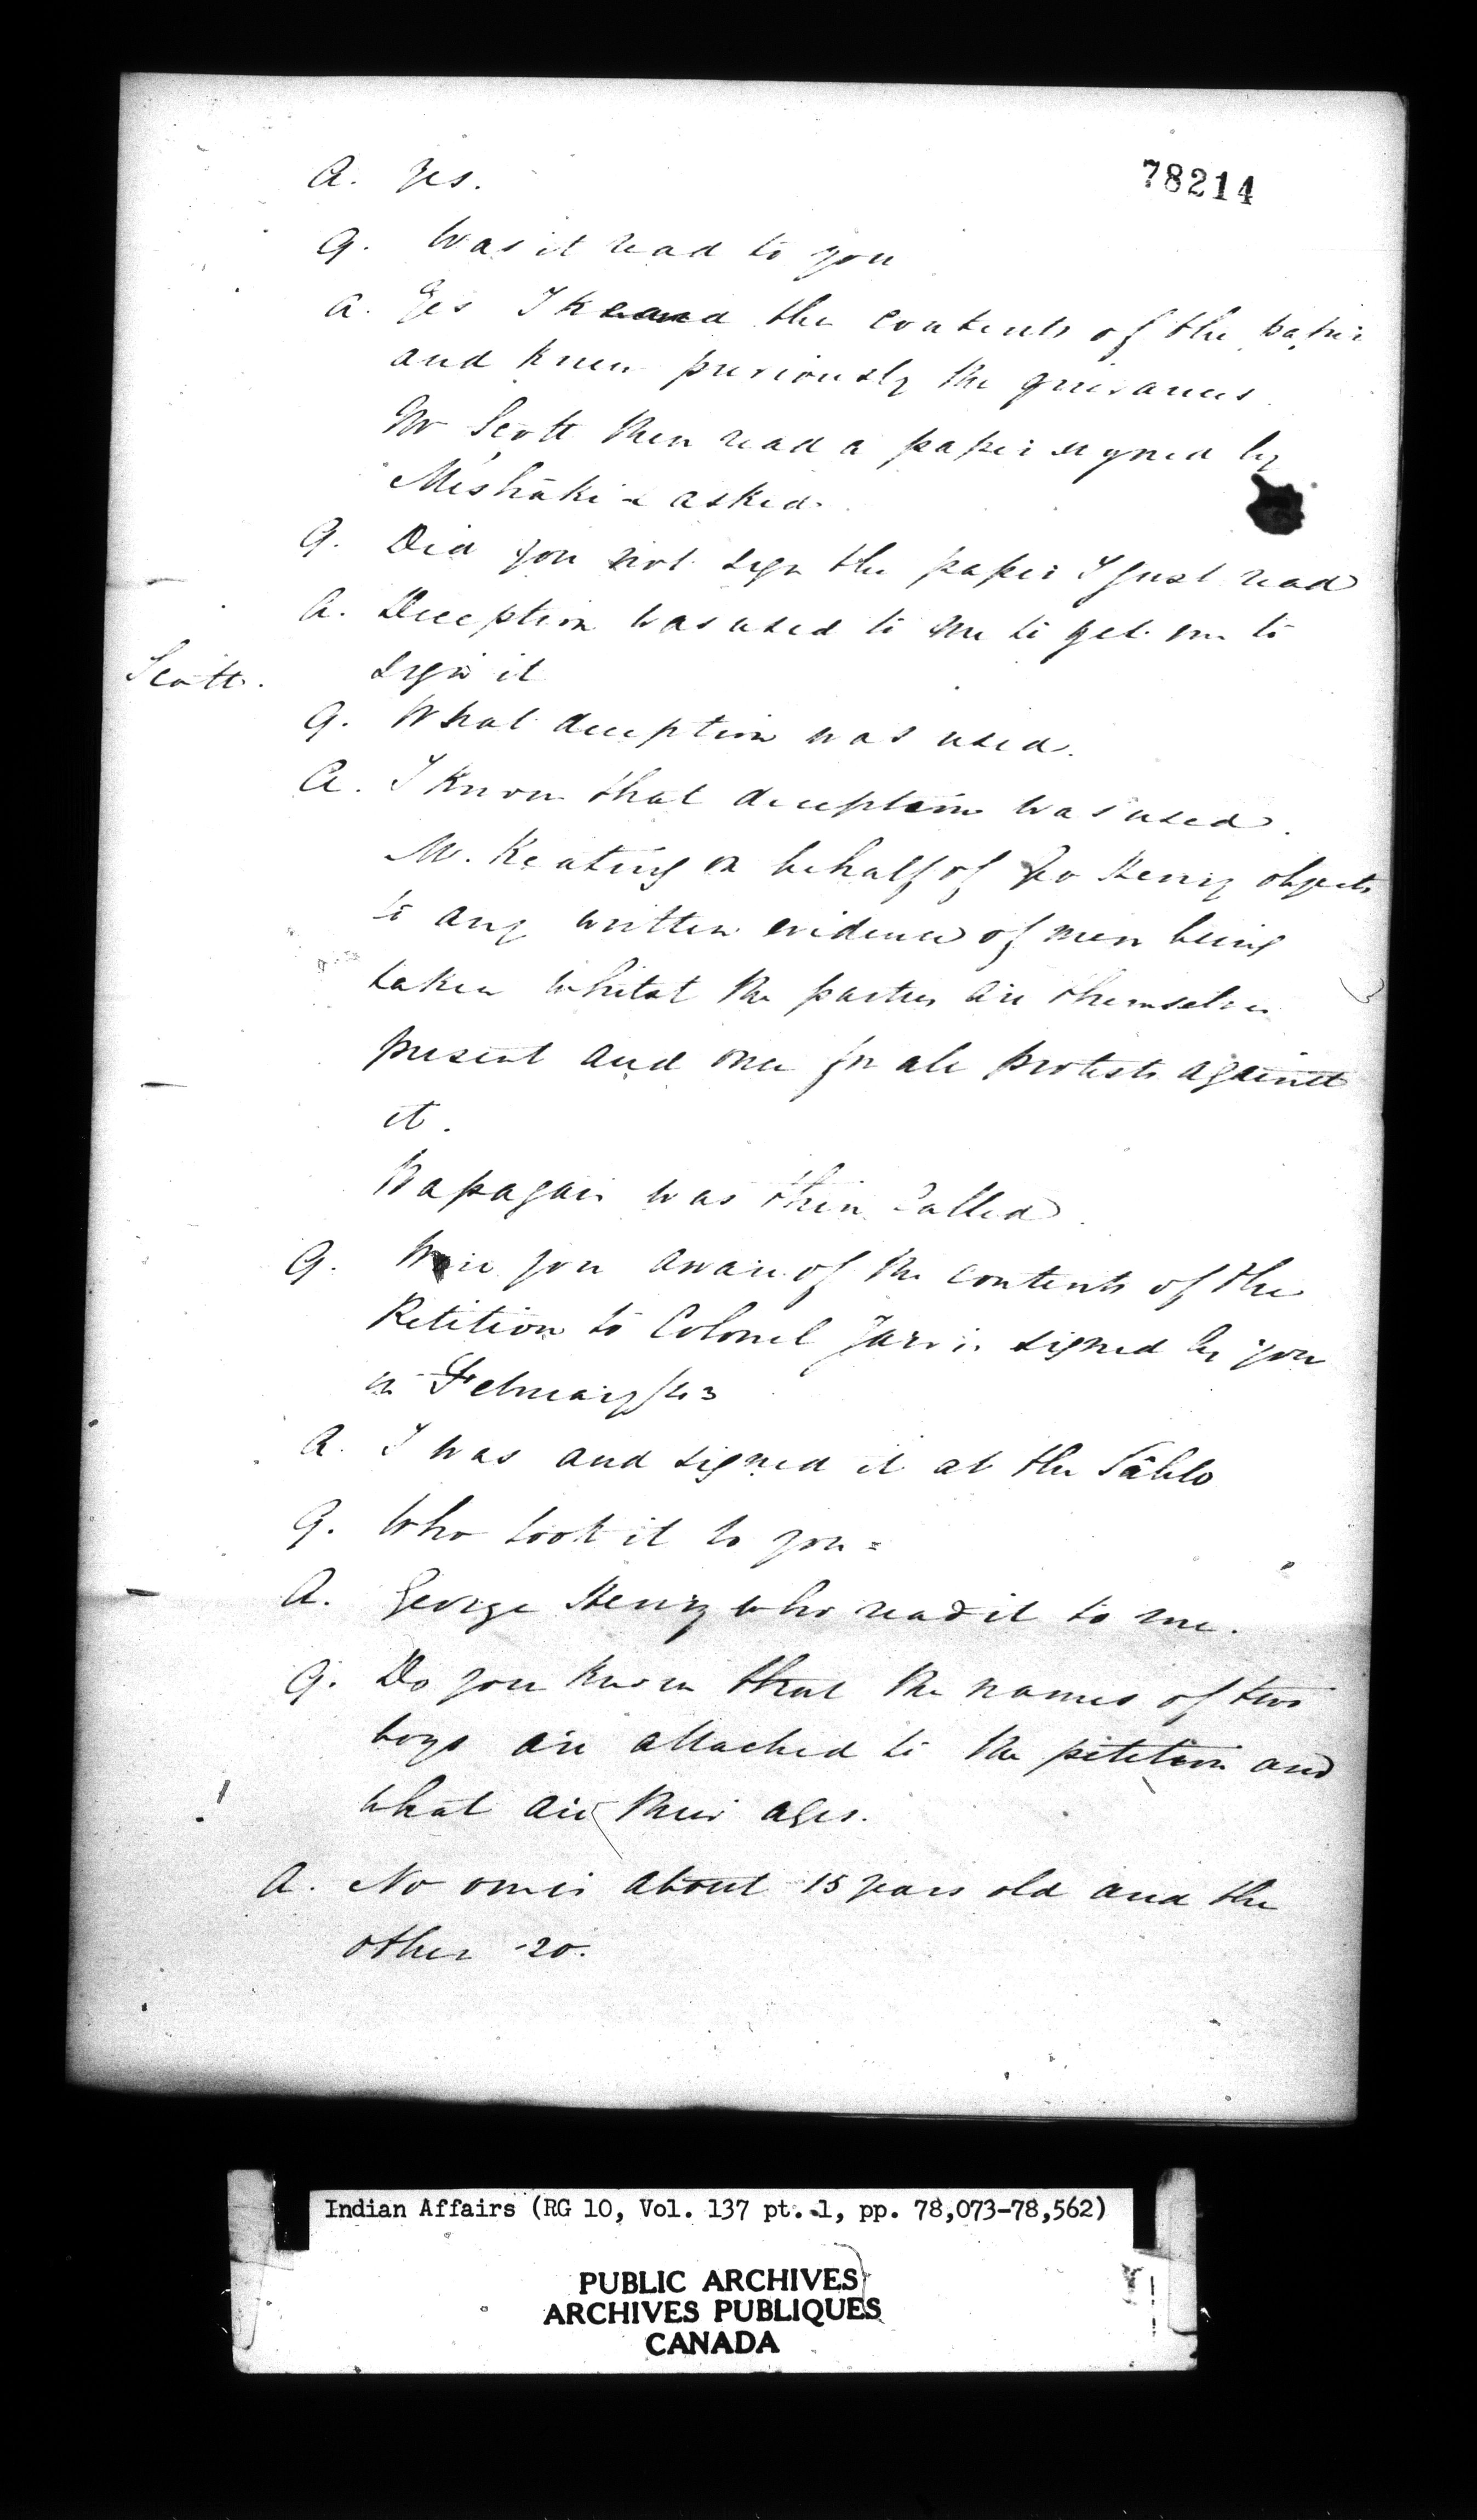 78214
A. Yes.
Q. Was it read to you
A. Yes I heard the contents of the paper
and knew previously the grievances
Mr Scott then read a paper signed by
Mishaki & asked.
Q. Did you not sign the paper I just read
A. Deception was used to me to get me to
Scott.
sign it
Q. What deception was used.
A. I know that deception was used.
Mr. Keating on behalf of Geo Henry objects
to any written evidence of men being
taken whilst the parties are themselves
present and once for all protests against
it.
Wapagas was then called
Q. Were you aware of the contents of the
Petition to Colonel Jarvis signed by you
in February /43
A. I was and signed it at the Sable
Q. Who took it to you =
A. George Henry who read it to me.
Q. Do you know that the names of two
boys are attached to the petition and
! what are their ages.
A. No one is about 15 years old and the
other 20.
Indian Affairs (RG 10, Vol. 137 pt. 1, pp. 78,073-78,562)
PUBLIC ARCHIVES
ARCHIVES PUBLIQUES
CANADA